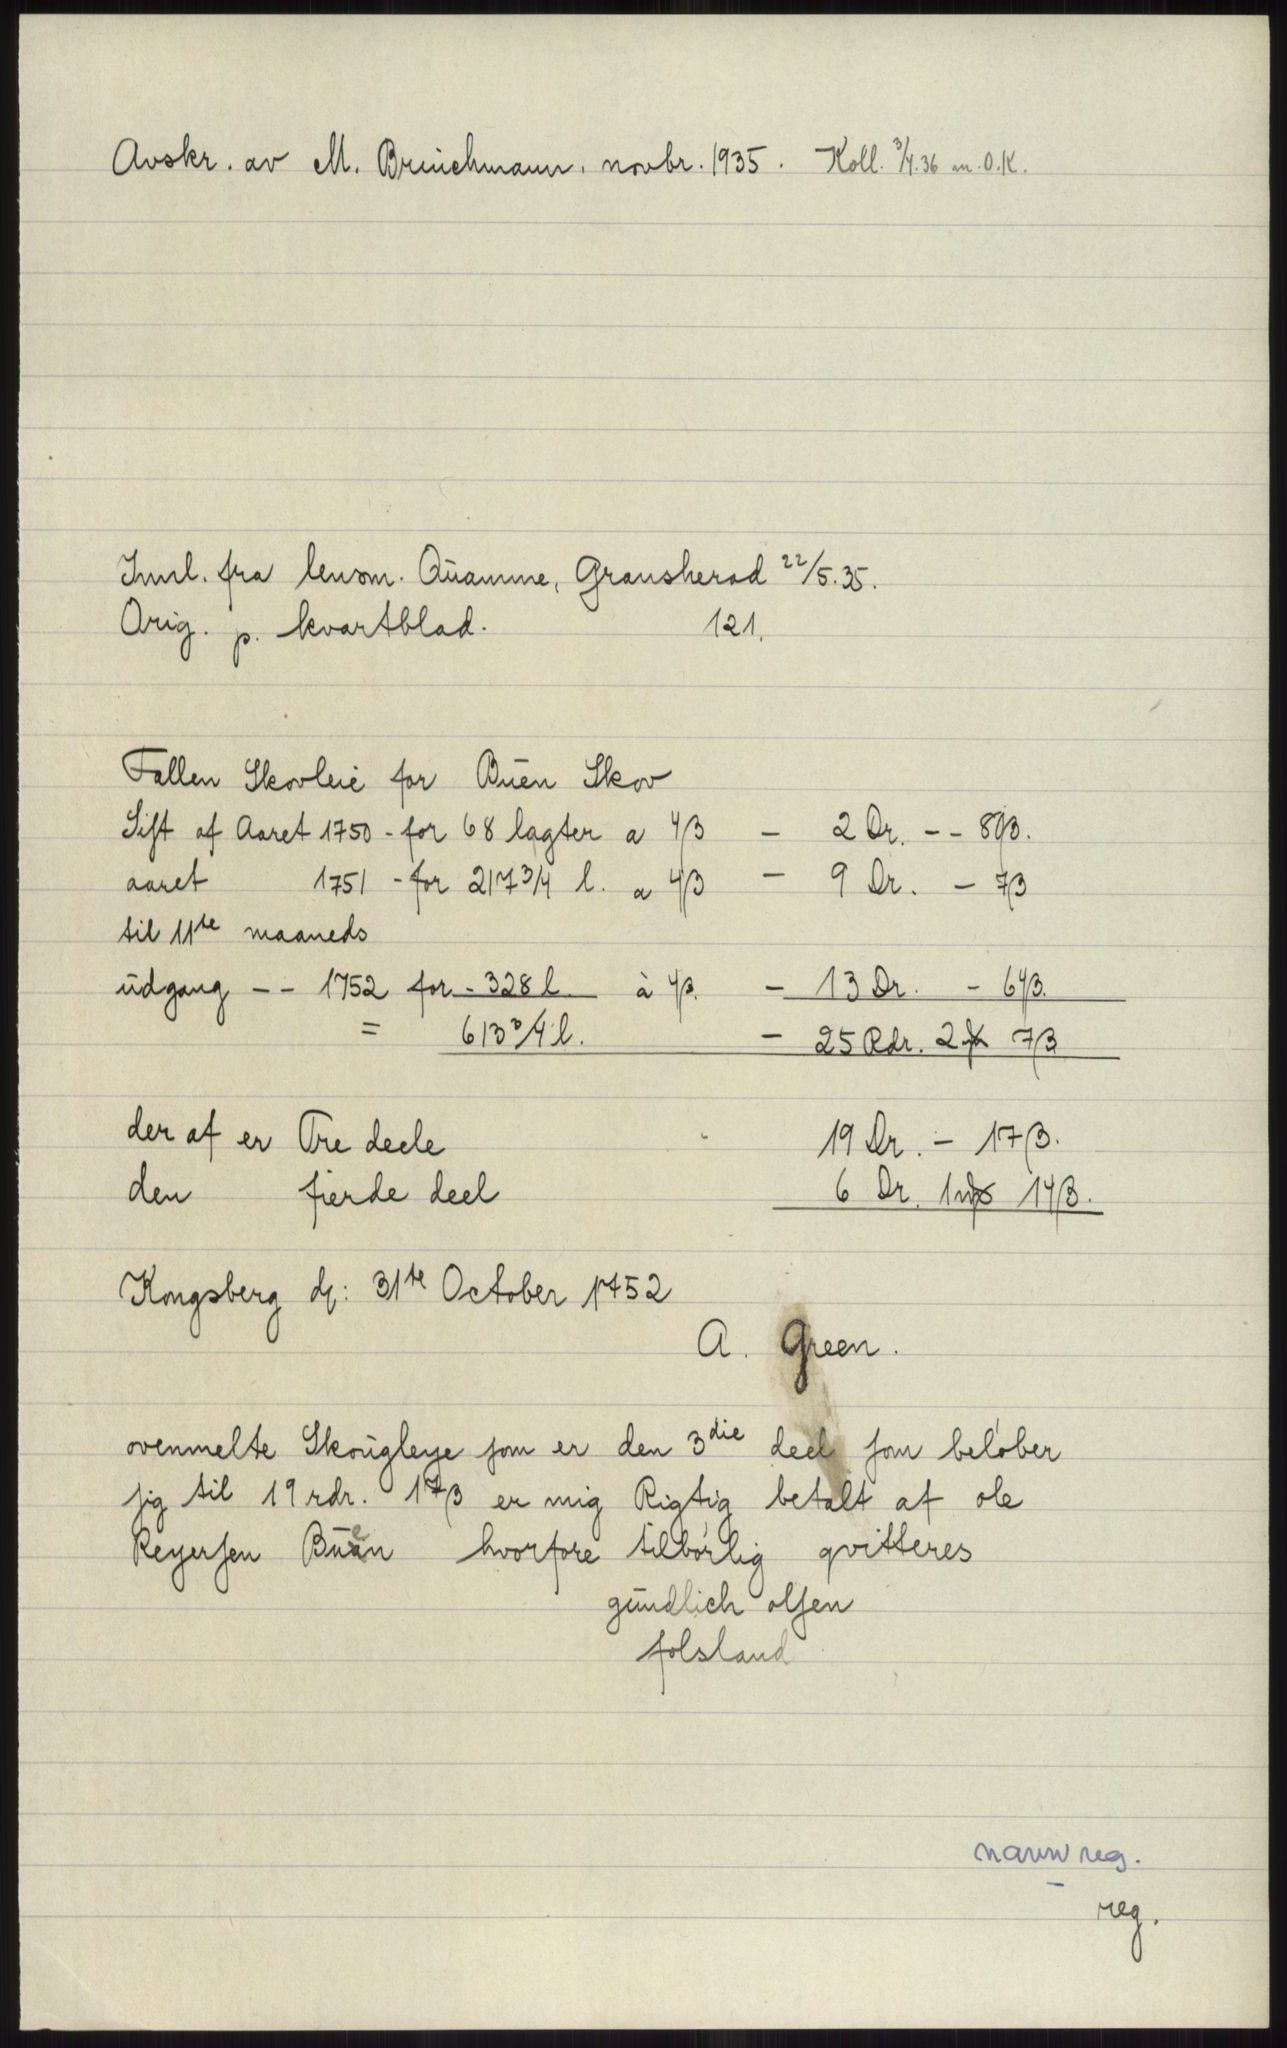 Avskr. av M. Brünchmann. novbr. 1935. Koll. 3/4.36 m. O.K.
Innl. fra lensm. Qŭamme, Gransherad 22/5.35.
Orig. p. kvartblad. 121.
Fallen Skovleie for Bŭen Skov
Sift af Aaret 1750 - for 68 lagter a 4β - 2 Dr. - - 80β.
aaret 1751 - for 217 3/4 l. a 4β - 9 Dr. - 7β
til 11te maaneds
ŭdgang - - 1752 for - 328 l. à 4β. - 13 Dr. - 64β.
= 613 3/4 l. - 25 Rdr. 2 7β
der af er Tre deele 19 Dr. - 17β.
den fierde deel 6 Dr. 1 14β.
Kongsberg d: 31te October 1752
A. Green.
ovenmelte Skoŭgleye som er den 3die deel som beløber
sig til 19 rdr. 17β er mig Rigtig betalt af ole
Reyersen Bŭen hvorfore tilbørlig qvitteres
gŭndlich olsen
folsland
navnreg.
reg.